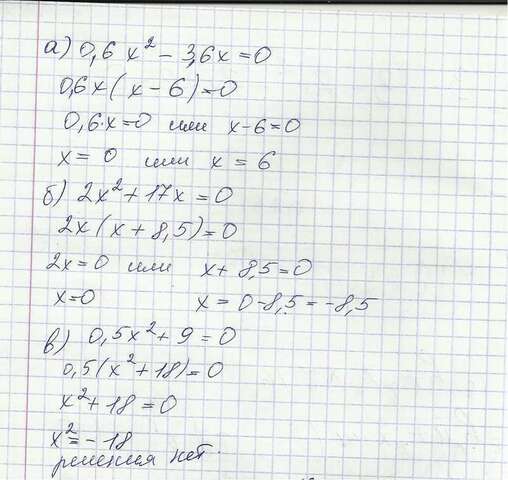 а) 0,6 x² - 3,6x = 0
0,6x (x - 6) = 0
0,6·x = 0 или x - 6 = 0
x = 0 или x = 6
б) 2x² + 17x = 0
2x (x + 8,5) = 0
2x = 0 или x + 8,5 = 0
x = 0 x = 0 - 8,5 = -8,5
в) 0,5x² + 9 = 0
0,5 (x² + 18) = 0
x² + 18 = 0
x² = -18
решения нет.